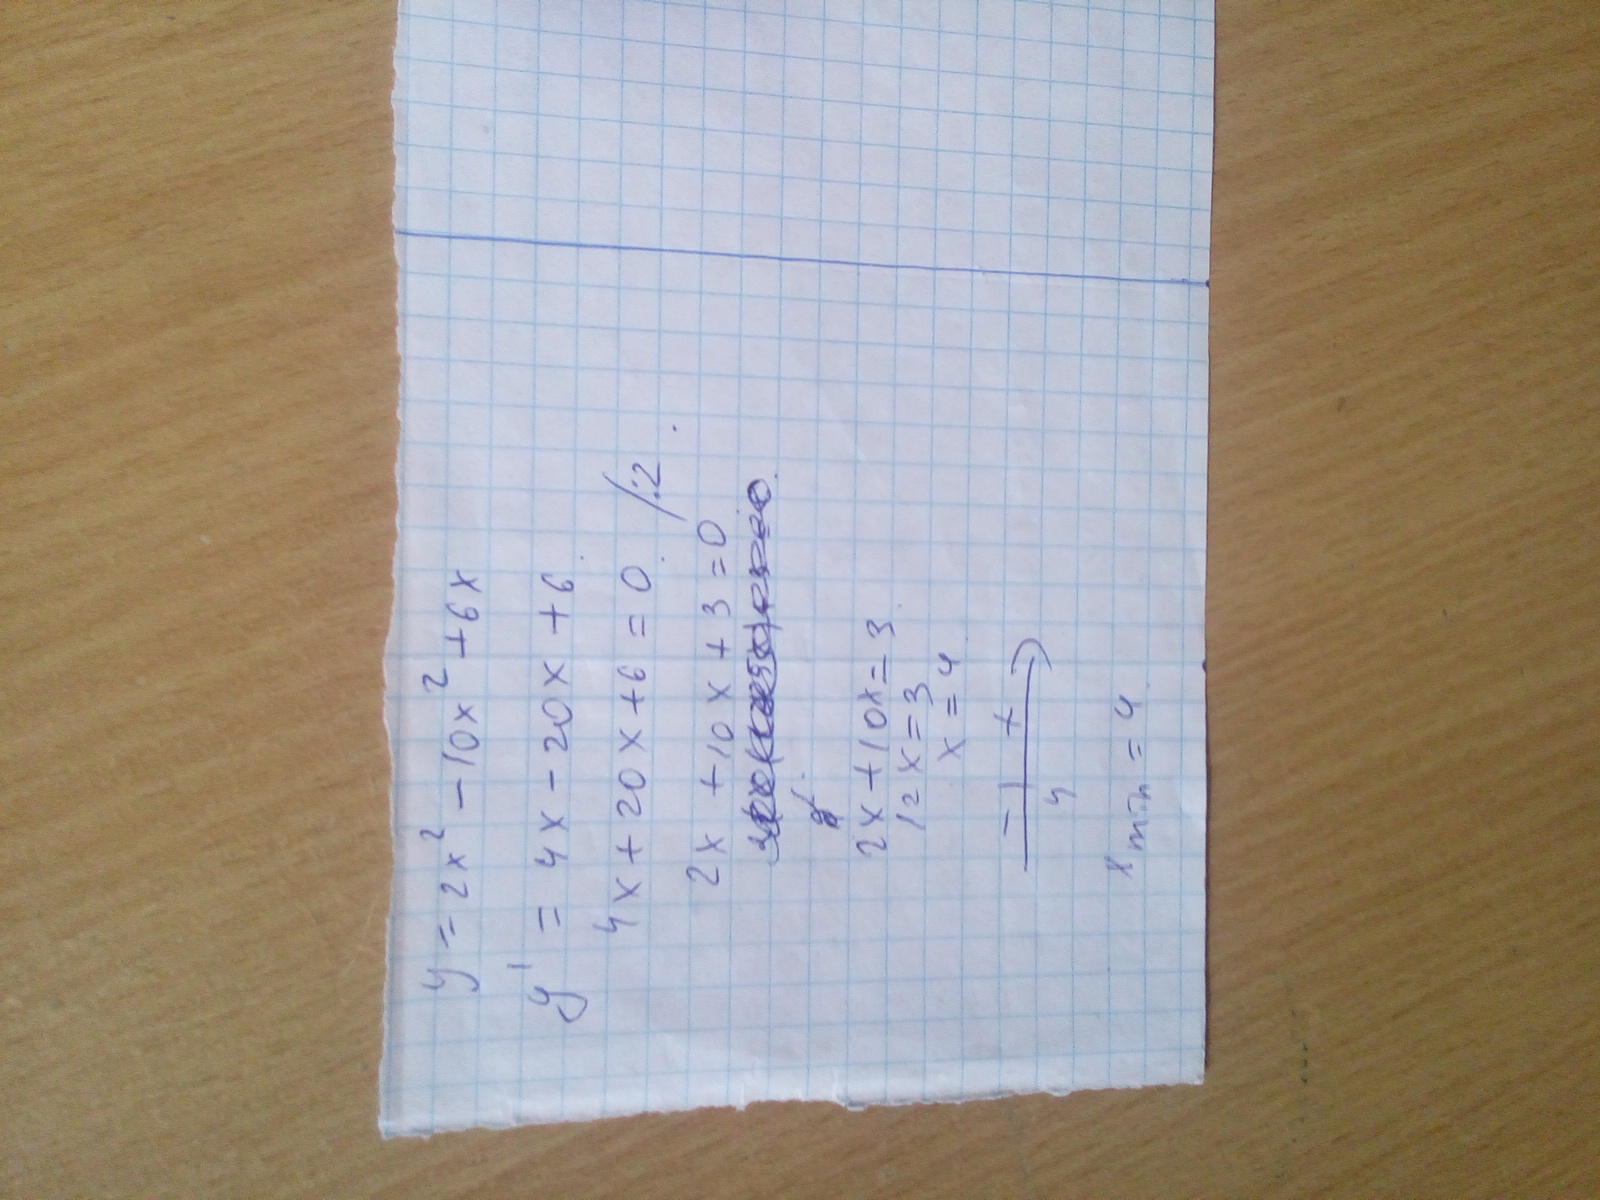 y = 2x² - 10x² + 6x
y' = 4x - 20x + 6
4x + 20x + 6 = 0 /:2
2x + 10x + 3 = 0
2x + 10x = 3
12x = 3
x = 4
- +
4
x min = 4